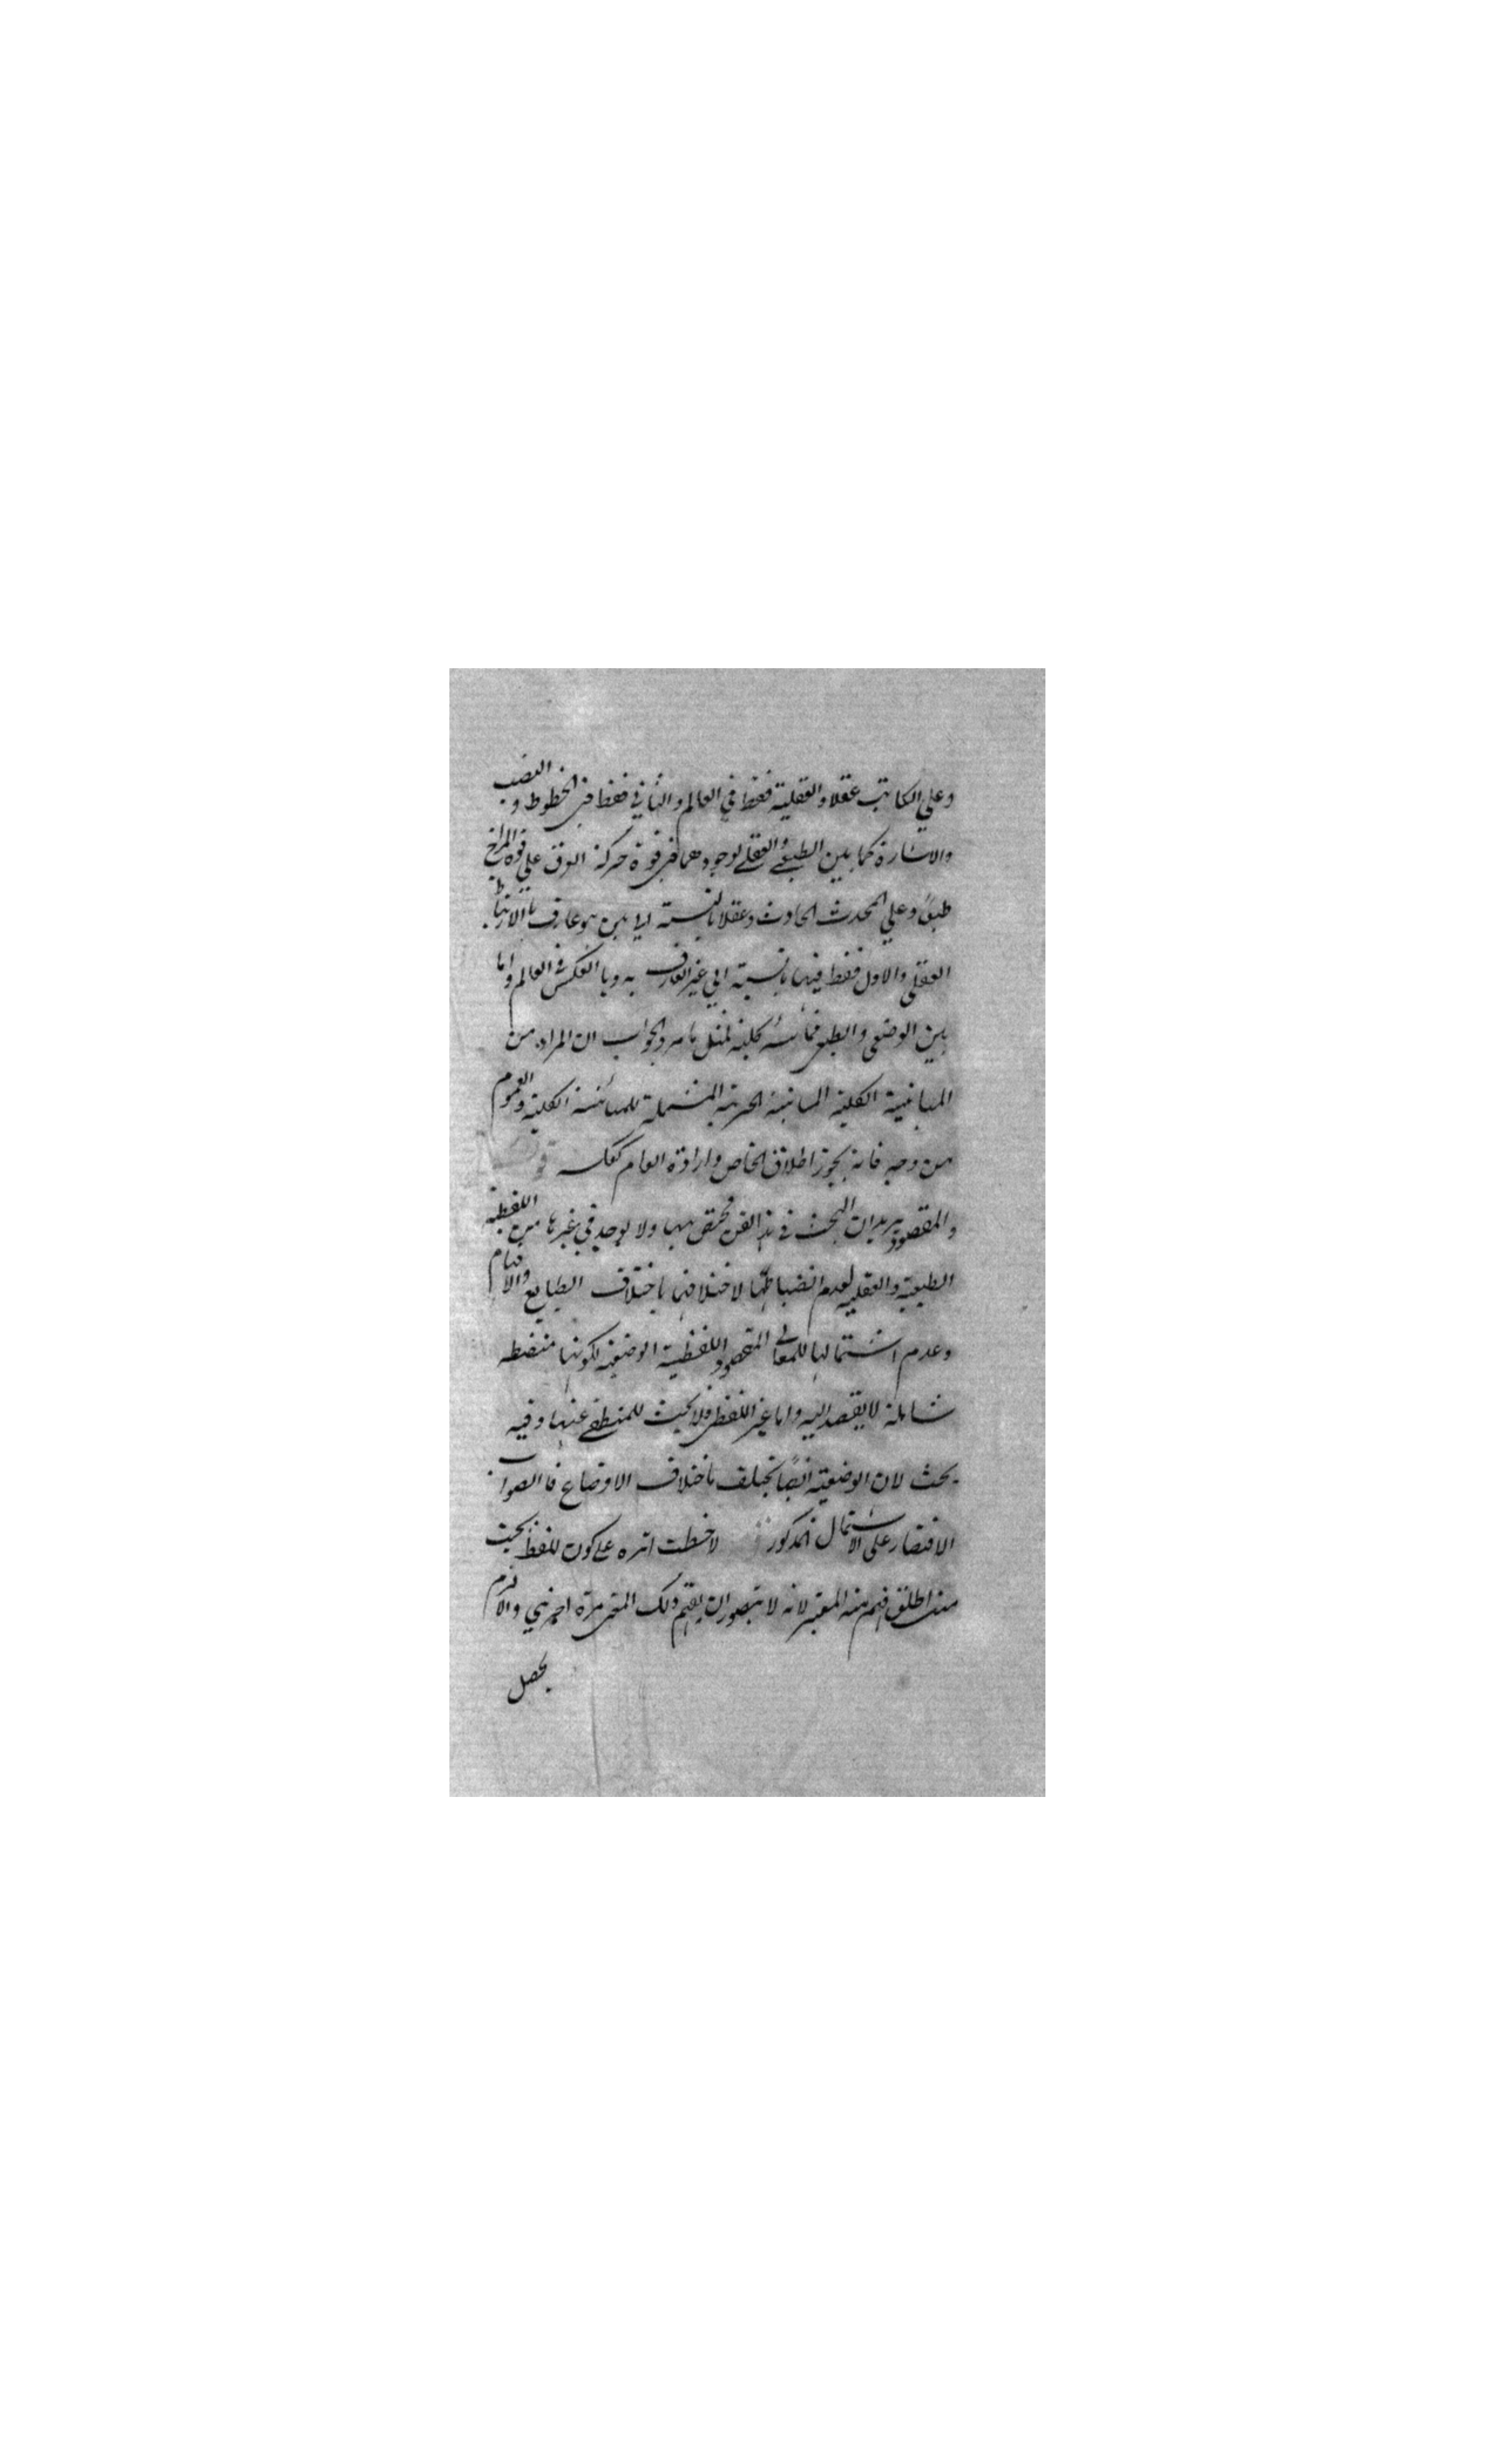 وعلي الكاتب عقلا والعقلية فقط في العالم والثاني فقط في الخطوط والنصب
والاشارة كما بين الطبعي والعقلي لوجودهما في قوة حركة العرق علي قوة المزاج
طبعا وعلي المحدث الحادث وعقلا بالنسبة الي من هو عارف بالارتباط
العقلي والاول فقط فيها بالنسبة الي غير العارف به وبالعكس في العالم واما
بين الوضعي والطبعي كلية لمثل ما مر والجواب ان المراد من
المباينة الكلية المباينة الجزئية المشتملة للمباينة الكلية والعموم
من وجه فانه يجوز اطلاق الخاص وارادة العام كعكسه
والمقصود يريد ان البحث في هذا الفن مختص بها ولا يوجد في غيرها من اللفظية
الطبعية والعقلية لعدم انضباطها لاختلافها باختلاف الطبايع والافهام
وعدم اشتمالها للمعاني المقصود اللفظية الوضعية لكونها منضبطه
شاملة لا يقصد اليه واما غير اللفظي فلا بحث للمنطقي عنها وفيه
بحث لان الوضعية ايضا تختلف باختلاف الاوضاع فالصواب
الاقتصار علي الاشتمال المذكور لاحظت اثره علي كون اللفظ بحيث
متى اطلق فهم منه المعنى لانه لا يتصور ان يفهم ذلك المعنى مرة اخري والا لزم
يحصل